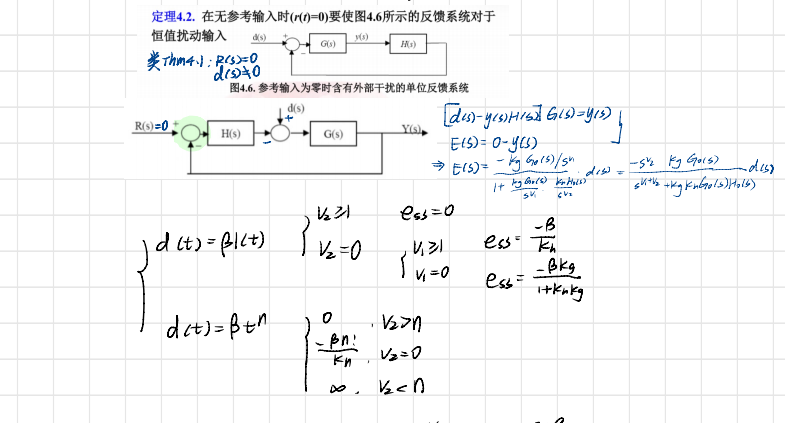 定理4.2. 在无参考输入时(r(t)=0)要使图4.6所示的反馈系统对于
恒值扰动输入
d(s) + - G(s) y(s) H(s)
类Thm4.1: R(s)=0
d(s)≠0
图4.6. 参考输入为零时含有外部干扰的单位反馈系统
d(s)
R(s)=0 + - H(s) - + G(s) Y(s)
[d(s)-y(s)H(s)]G(s)=y(s)
E(s)=0-y(s)
⇒ E(s)= \frac{-kg G₀(s)/s^{v₁}}{1+\frac{kg G₀(s)}{s^{v₁}}·\frac{kh H₀(s)}{s^{v₂}}}·d(s) = \frac{-s^{v₂} kg G₀(s)}{s^{v₁+v₂}+kg kh G₀(s)H₀(s)} d(s)
d(t)=β1(t) { v₂≥1 e_{ss}=0
v₂=0 { v₁≥1 e_{ss}=\frac{-β}{kh}
v₁=0 e_{ss}=\frac{-βkg}{1+khkg}
d(t)=βtⁿ { 0 , v₂>n
\frac{-βn!}{kh} , v₂=0
∞ , v₂<n